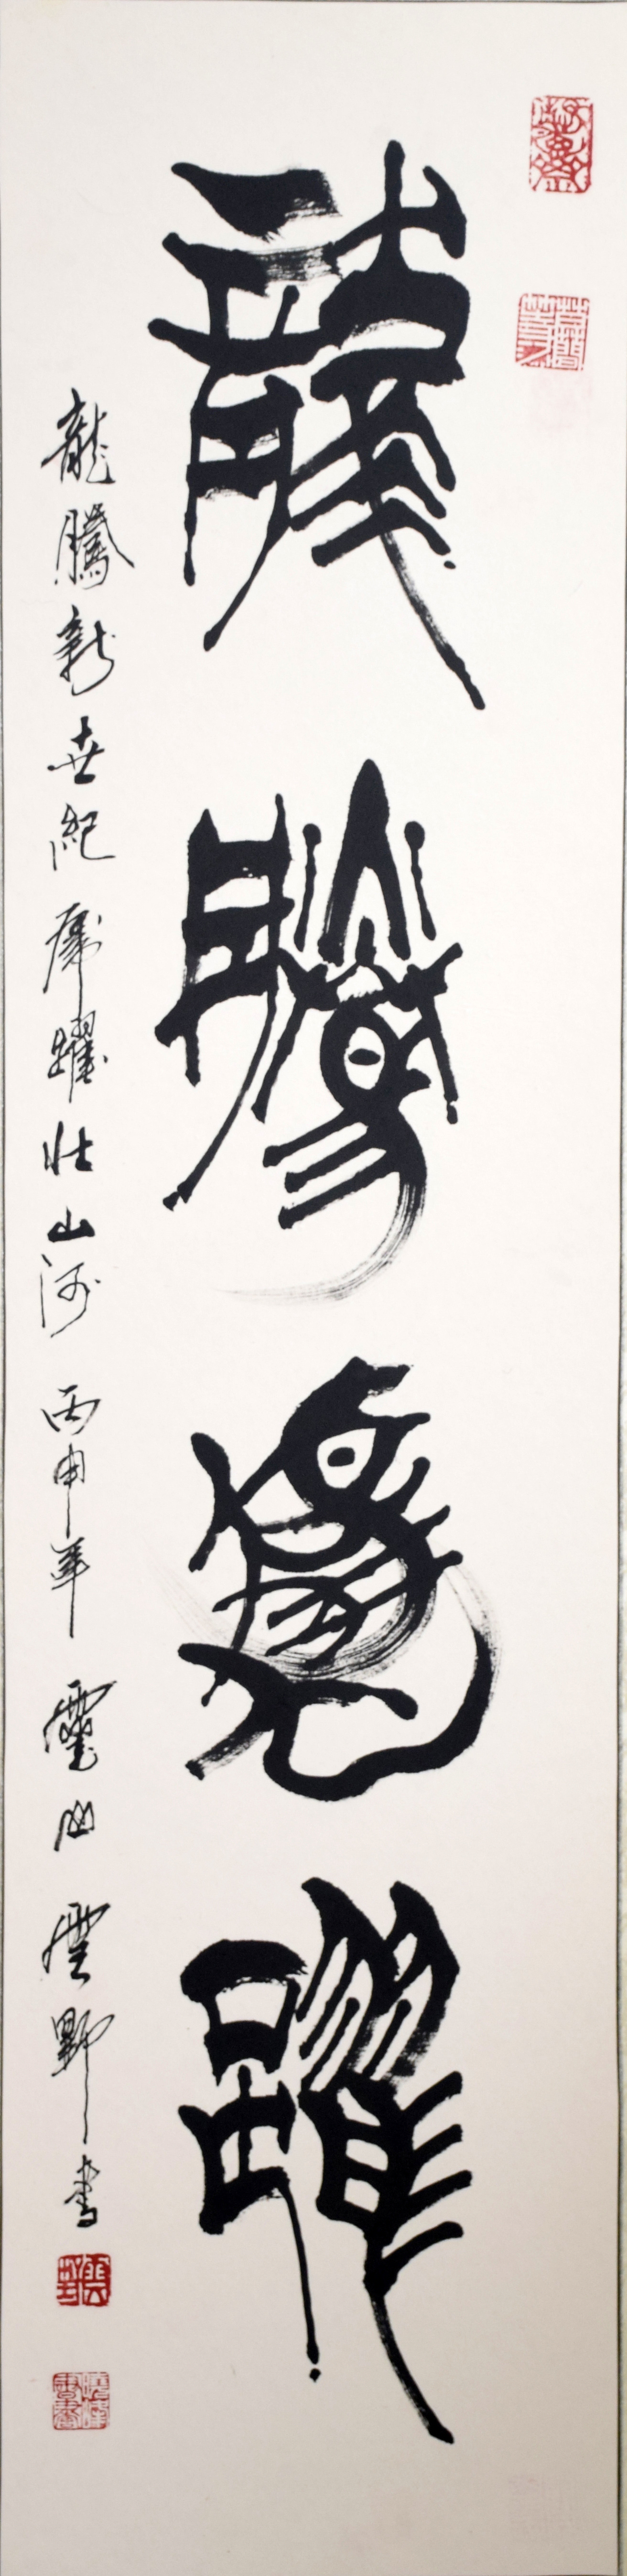 龍騰虎躍
龍騰新世紀虎躍壯山河 丙申年 靈山雲野書